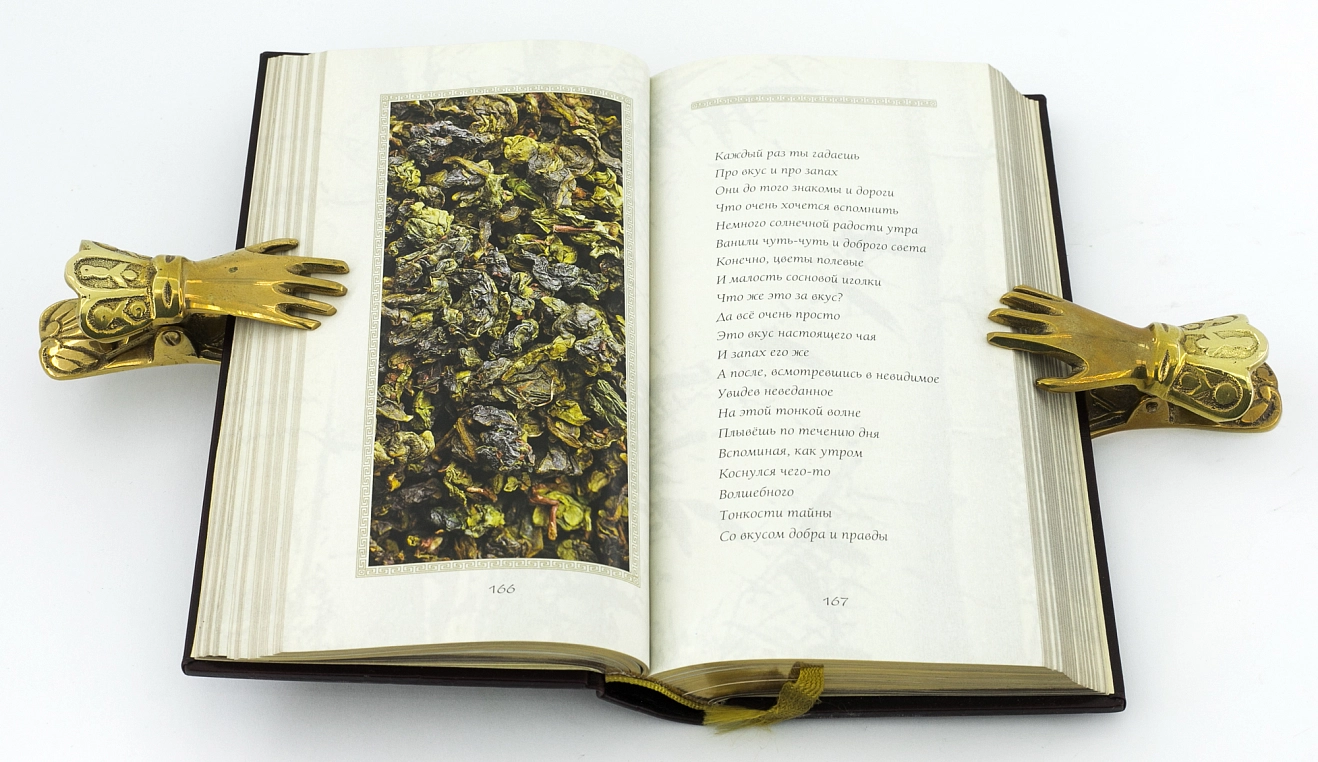 166
Каждый раз ты гадаешь
Про вкус и про запах
Они до того знакомы и дороги
Что очень хочется вспомнить
Немного солнечной радости утра
Ванили чуть-чуть и доброго света
Конечно, цветы полевые
И малость сосновой иголки
Что же это за вкус?
Да всё очень просто
Это вкус настоящего чая
И запах его же
А после, всмотревшись в невидимое
Увидев неведанное
На этой тонкой волне
Плывёшь по течению дня
Вспоминая, как утром
Коснулся чего-то
Волшебного
Тонкости тайны
Со вкусом добра и правды
167